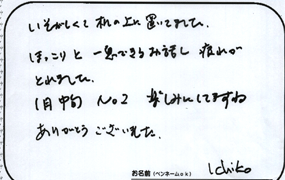 いそがしくて 机の上に置いてました。
ほっこりと 一息できるお話し 疲れが
とれました。
1月中旬 No2 楽しみにしてますね
ありがとうございました。
お名前(ペンネームok) Ichiko